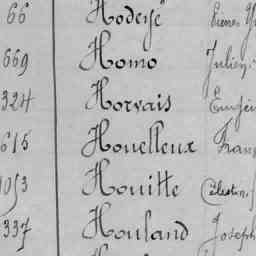 66 Hodeyé
669 Homo Julien
324 Horvais Eugène
615 Houelleux Fran
1053 Houitte Célestin
337 Houland Joseph